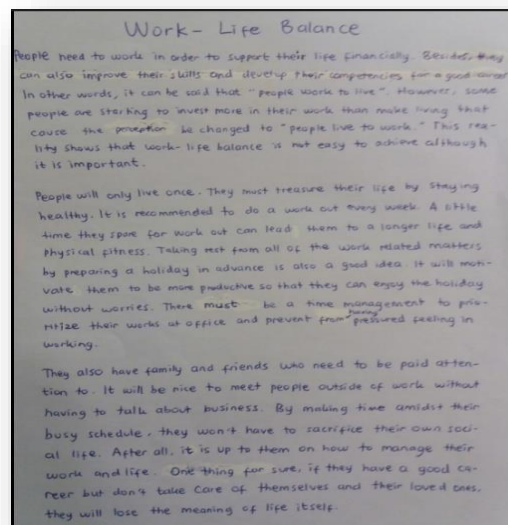 Work - Life Balance
People need to work in order to support their life financially. Besides, they
can also improve their skills and develop their competencies for a good career.
In other words, it can be said that "people work to live". However, some
people are starting to invest more in their work than make living that
cause the perception be changed to "people live to work." This rea-
lity shows that work-life balance is not easy to achieve although
it is important.
People will only live once. They must treasure their life by staying
healthy. It is recommended to do a work out every week. A little
time they spare for work out can lead them to a longer life and
physical fitness. Taking rest from all of the work related matters
by preparing a holiday in advance is also a good idea. It will moti-
vate them to be more productive so that they can enjoy the holiday
without worries. There must be a time management to prio-
ritize their works at office and prevent from having pressured feeling in
working.
They also have family and friends who need to be paid atten-
tion to. It will be nice to meet people outside of work without
having to talk about business. By making time amidst their
busy schedule, they won't have to sacrifice their own soci-
al life. After all, it is up to them on how to manage their
work and life. One thing for sure, if they have a good ca-
reer but don't take care of themselves and their loved ones,
they will lose the meaning of life itself.